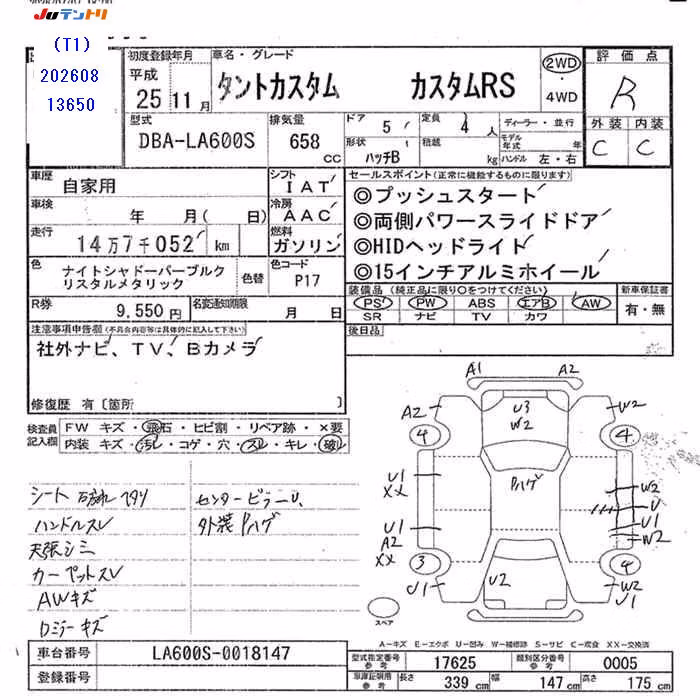 JUテントリ
(T1)
202608
13650
初度登録年月
平成
25年11月
車名・グレード
タントカスタム カスタムRS
2WD
・
4WD
評価点
R
外装 内装
C C
型式
DBA-LA600S
排気量
658
cc
ドア
5
形状
ハッチB
定員
4人
積載
kg
ディーラー・並行
モデル年式 年
ハンドル 左・右
車歴
自家用
シフト
IAT
車検
年 月( 日)
冷房
AAC
走行
14万7千052 km
燃料
ガソリン
色
ナイトシャドーパープルク
リスタルメタリック
色替
色コード
P17
R券
9,550円
名変通知期限
月 日
セールスポイント(正常に機能するものに限ります)
◎プッシュスタート
◎両側パワースライドドア
◎HIDヘッドライト
◎15インチアルミホイール
装備品(純正品に限り○をつけてください)
PS PW ABS エアB AW
SR ナビ TV カワ
新車保証書
有・無
後日品
注意事項申告欄(不具合内容等は具体的に記入して下さい)
社外ナビ、TV、Bカメラ
修復歴 有〔箇所 〕
検査員
記入欄
FW キズ・飛石・ヒビ割・リペア跡・×要
内装 キズ・汚れ・コゲ・穴・スレ・キレ・破レ
シート
ハンドルスレ
天張シミ
カーペットスレ
AWキズ
ロッジーキズ
センターピラーU、
外装Pハゲ
A1 A2
A2
U3
W2
W2
4
4
U1
XX
Pハゲ
W2
U
U1
W2
U1
A2
XX
3
4
U2
U1
W2
U1
スペア
A-キズ E-エクボ U-凹み W-補修跡 S-サビ C-腐食 XX-交換済
車台番号
LA600S-0018147
登録番号
型式指定番号
参考
17625
類別区分番号
参考
0005
車庫証明用
参考
長さ 339 cm
幅 147 cm
高さ 175 cm